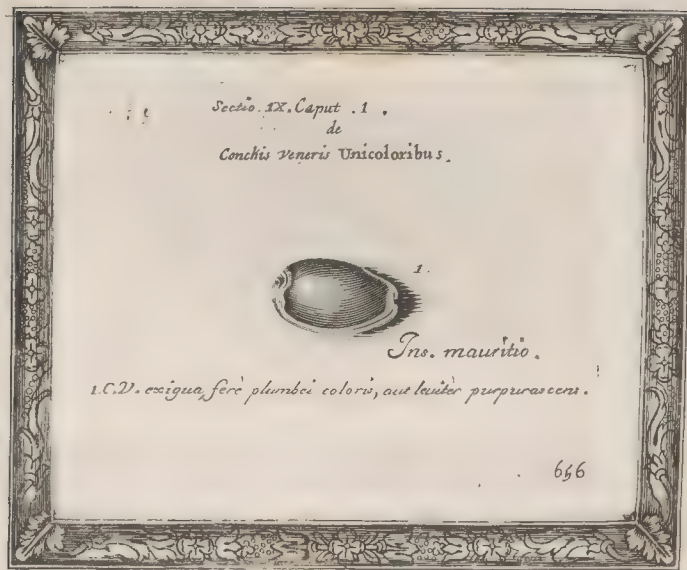 Sectio. IX. Caput . 1 .
de
Conchis Veneris Unicoloribus.
1.
Ins. mauritio.
1. C.V. exigua, ferè plumbei coloris, aut leuitèr purpurascens.
656